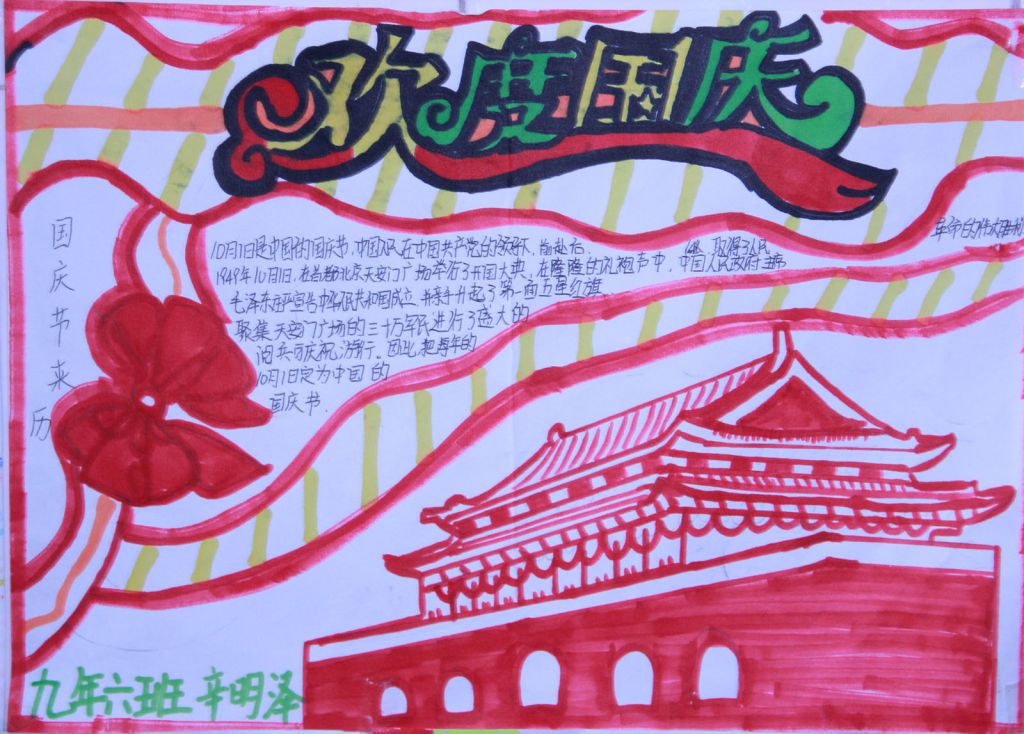 欢度国庆
国庆节来历
10月1日是中国的国庆节,中国人民在中国共产党的领导下,前赴后 继,取得了人民
革命的伟大胜利
1949年10月1日,在首都北京天安门广场举行了开国大典,在隆隆的礼炮声中,中国人民政府主席
毛泽东庄严宣告中华人民共和国成立 并亲手升起了第一面五星红旗
聚集天安门广场的三十万军民进行了盛大的
阅兵和庆祝游行。因此把每年的
10月1日定为中国的
国庆节.
九年六班 辛明泽